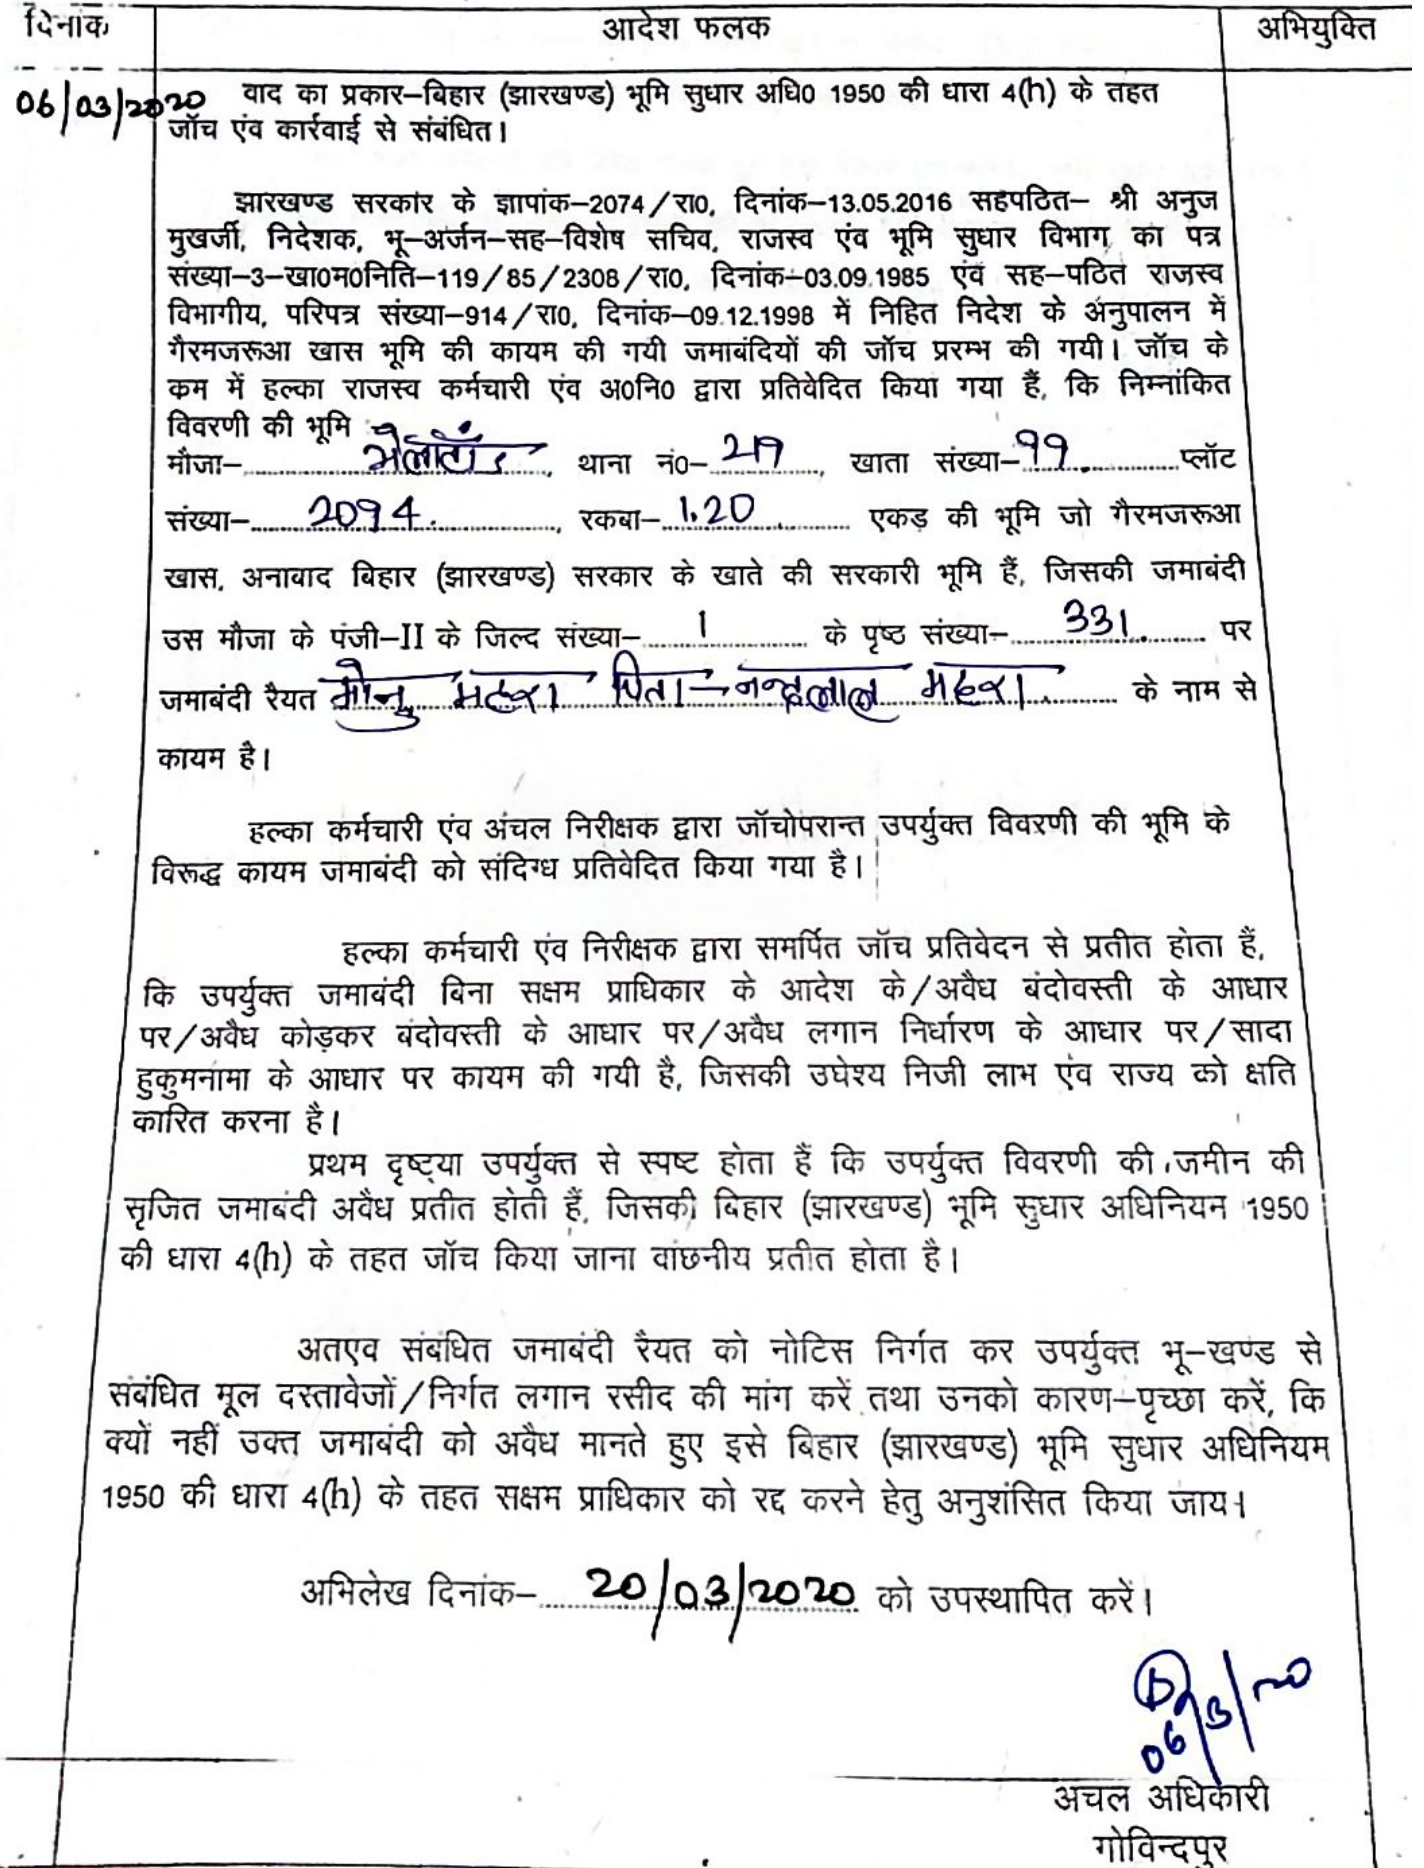 दिनांक आदेश फलक अभियुक्ति
06/03/2020 वाद का प्रकार–बिहार (झारखण्ड) भूमि सुधार अधि0 1950 की धारा 4(h) के तहत
जॉच एंव कार्रवाई से संबंधित।
झारखण्ड सरकार के ज्ञापांक–2074/रा0, दिनांक–13.05.2016 सहपठित– श्री अनुज
मुखर्जी, निदेशक, भू–अर्जन–सह–विशेष सचिव, राजस्व एंव भूमि सुधार विभाग, का पत्र
संख्या–3–खा0म0निति–119/85/2308/रा0, दिनांक–03.09.1985 एंव सह–पठित राजस्व
विभागीय, परिपत्र संख्या–914/रा0, दिनांक–09.12.1998 में निहित निदेश के अनुपालन में
गैरमजरूआ खास भूमि की कायम की गयी जमाबंदियों की जॉच प्ररम्भ की गयी। जॉच के
कम में हल्का राजस्व कर्मचारी एंव अ0नि0 द्वारा प्रतिवेदित किया गया हैं, कि निम्नांकित
विवरणी की भूमि :–
मौजा–........, थाना नं0– 219, खाता संख्या– 99 ........प्लॉट
संख्या– 2094, रकबा– 1.20 एकड़ की भूमि जो गैरमजरूआ
खास, अनाबाद बिहार (झारखण्ड) सरकार के खाते की सरकारी भूमि हैं, जिसकी जमाबंदी
उस मौजा के पंजी–II के जिल्द संख्या– 1 के पृष्ठ संख्या– 331 पर
जमाबंदी रैयत महरा पिता – नन्दलाल महरा के नाम से
कायम है।
हल्का कर्मचारी एंव अंचल निरीक्षक द्वारा जॉचोपरान्त उपर्युक्त विवरणी की भूमि के
विरूद्ध कायम जमाबंदी को संदिग्ध प्रतिवेदित किया गया है।
हल्का कर्मचारी एंव निरीक्षक द्वारा समर्पित जॉच प्रतिवेदन से प्रतीत होता हैं,
कि उपर्युक्त जमाबंदी बिना सक्षम प्राधिकार के आदेश के/अवैध बंदोवस्ती के आधार
पर/अवैध कोड़कर बंदोवस्ती के आधार पर/अवैध लगान निर्धारण के आधार पर/सादा
हुकुमनामा के आधार पर कायम की गयी है, जिसकी उघेश्य निजी लाभ एंव राज्य को क्षति
कारित करना है।
प्रथम दृष्ट्या उपर्युक्त से स्पष्ट होता हैं कि उपर्युक्त विवरणी की जमीन की
सृजित जमाबंदी अवैध प्रतीत होती हैं, जिसकी बिहार (झारखण्ड) भूमि सुधार अधिनियन 1950
की धारा 4(h) के तहत जॉच किया जाना वांछनीय प्रतीत होता है।
अतएव संबंधित जमाबंदी रैयत को नोटिस निर्गत कर उपर्युक्त भू–खण्ड से
संबंधित मूल दस्तावेजों/निर्गत लगान रसीद की मांग करें तथा उनको कारण–पृच्छा करें, कि
क्यों नहीं उक्त जमाबंदी को अवैध मानते हुए इसे बिहार (झारखण्ड) भूमि सुधार अधिनियम
1950 की धारा 4(h) के तहत सक्षम प्राधिकार को रद्द करने हेतु अनुशंसित किया जाय।
अभिलेख दिनांक– 20/03/2020 को उपस्थापित करें।
06/3/20
अचल अधिकारी
गोविन्दपुर